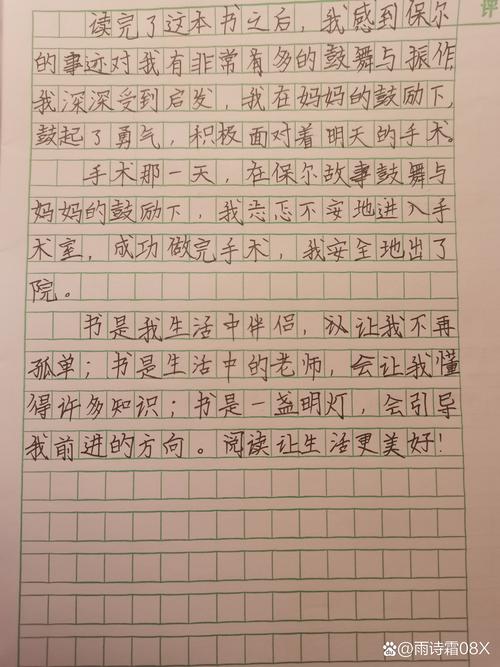 评
读完了这本书之后，我感到保尔
的事迹对我有非常有多的鼓舞与振作
我深深受到启发，我在妈妈的鼓励下，
鼓起了勇气，积极面对着明天的手术。
手术那一天，在保尔故事鼓舞与
妈妈的鼓励下，我忐忑不安地进入手
术室，成功做完手术，我安全地出了
院。
书是我生活中伴侣，认让我不再
孤单；书是生活中的老师，会让我懂
得许多知识；书是一盏明灯，会引导
我前进的方向。阅读让生活更美好！
@雨诗霜08X